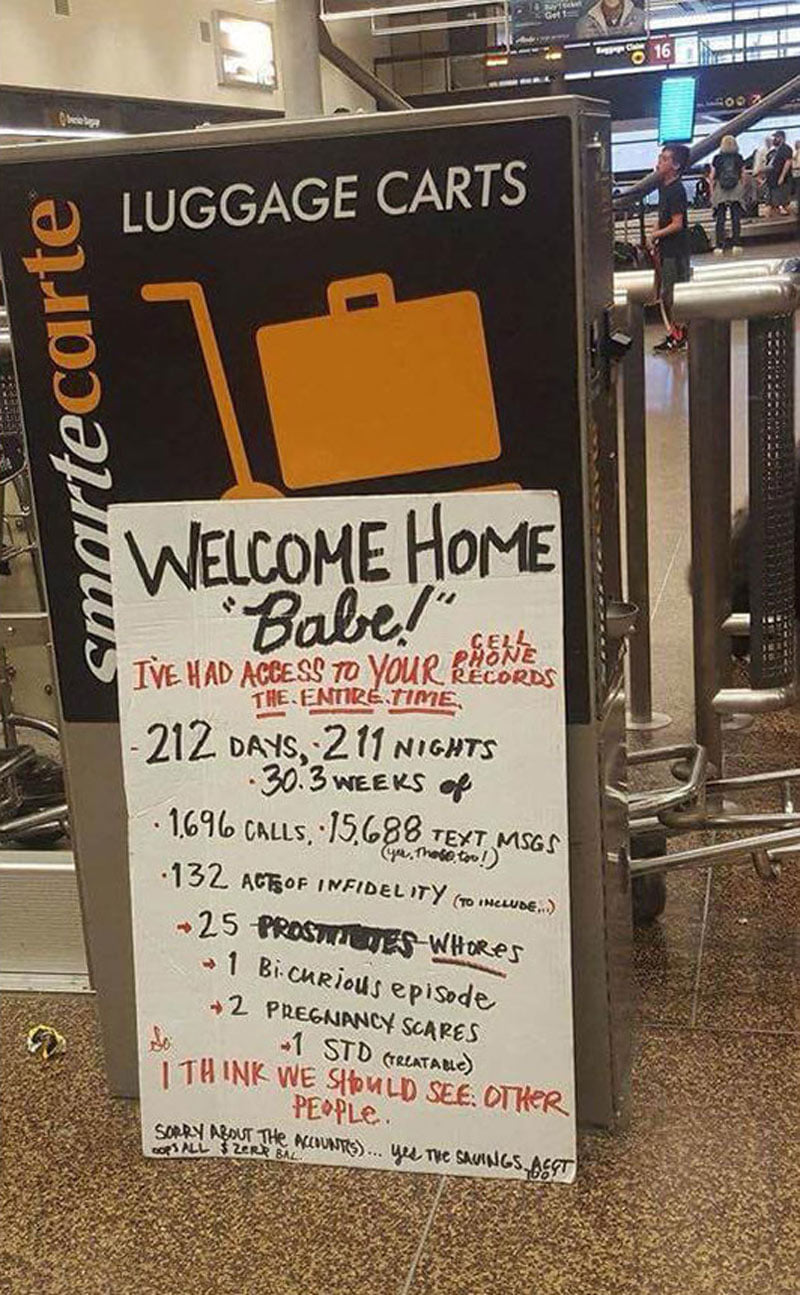 Buy 1 ticket
Get 1
Baggage Claim 16
LUGGAGE CARTS
smartecarte
WELCOME HOME
"Babe!"
I'VE HAD ACCESS TO YOUR CELL PHONE RECORDS
THE ENTIRE TIME.
- 212 DAYS, · 211 NIGHTS
· 30.3 WEEKS of
· 1,696 CALLS, · 15,688 TEXT MSGS
(yes, those too!)
· 132 ACTS OF INFIDELITY (TO INCLUDE...)
→ 25 PROSTITUTES WHORES
→ 1 Bi-curious episode
→ 2 PREGNANCY SCARES
→ 1 STD (TREATABLE)
So
I THINK WE SHOULD SEE OTHER
PEOPLE.
SORRY ABOUT THE ACCOUNT(S)... yes THE SAVINGS ACCT TOO
OOPS ALL $ ZERO BAL.